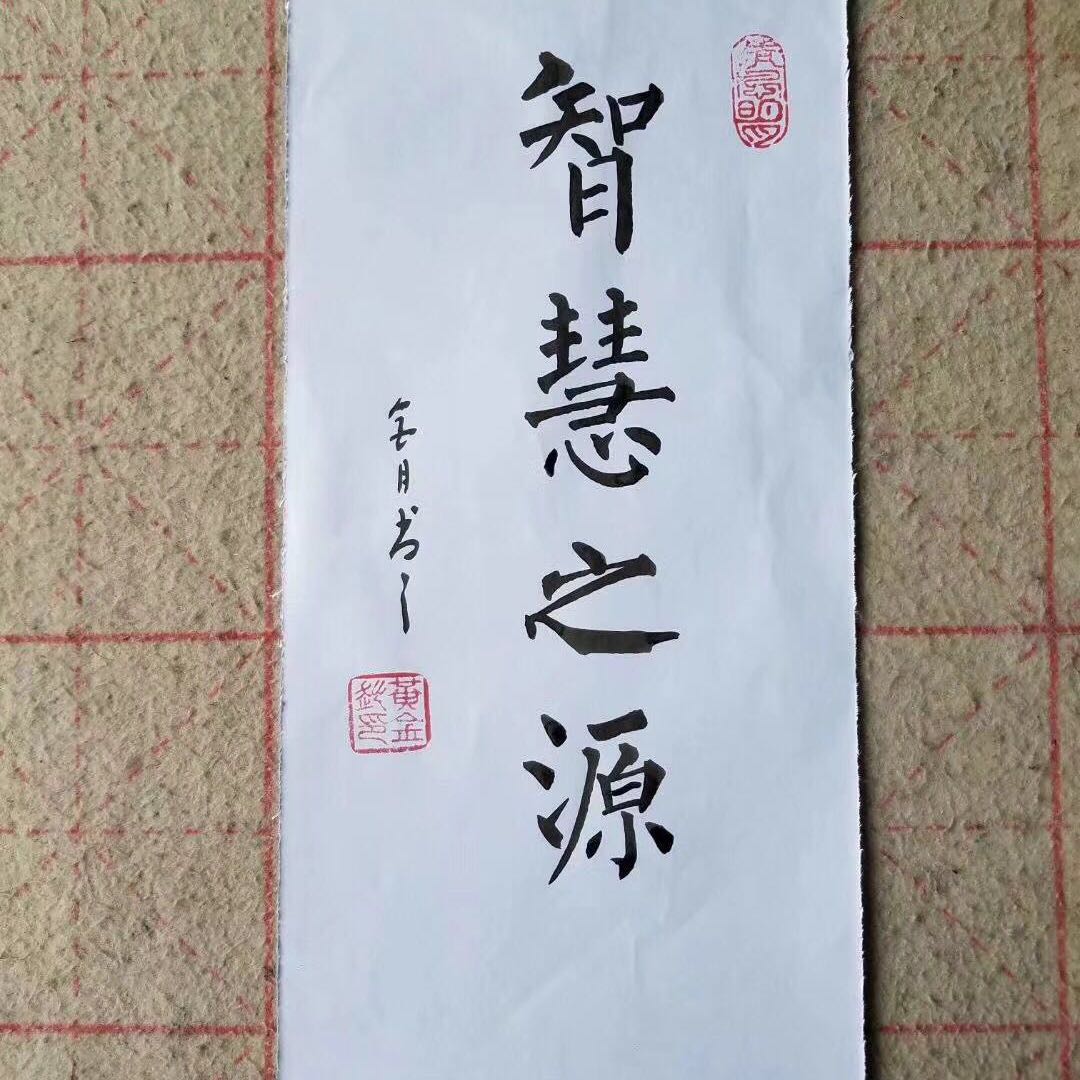 智慧之源
月书
黄金
印